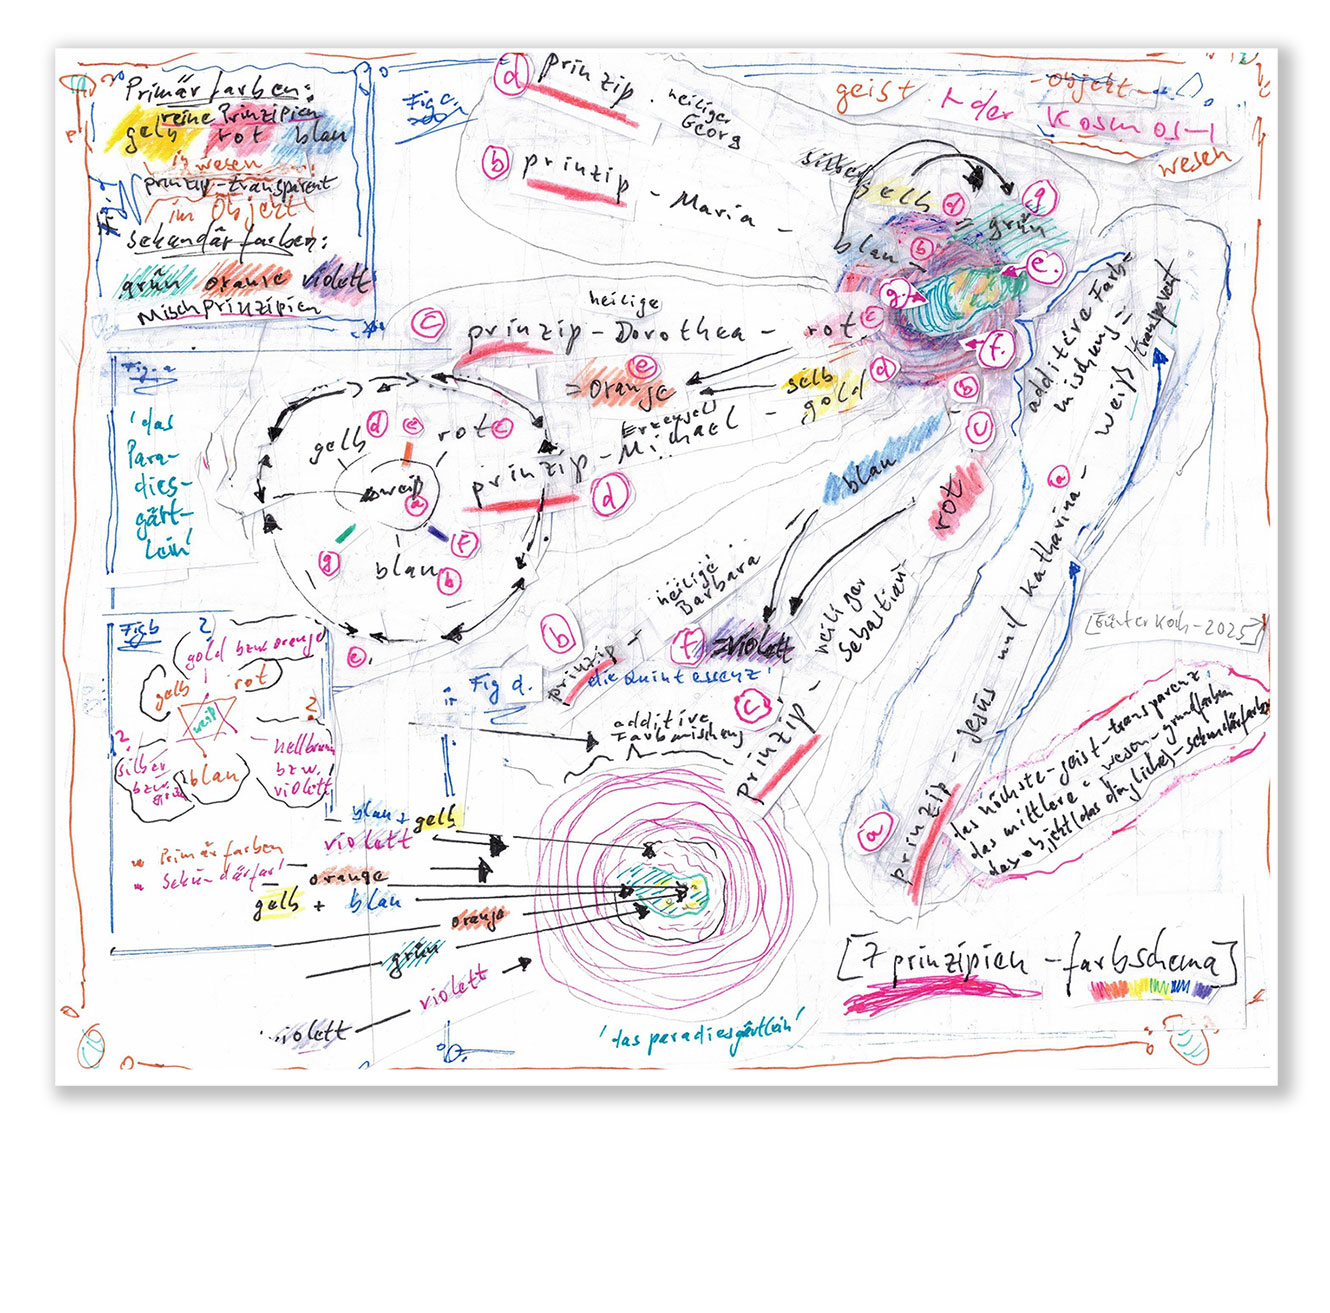 Primärfarben:
reine Prinzipien
gelb rot blau
wesen
prinzip-transparent
im Objekt
Sekundärfarben:
grün orange violett
Mischprinzipien
Fig c
d prinzip. heiliger
Georg
b prinzip - Maria -
geist
Objekt
der Kosmos-
wesen
silber
gelb d g
= grün
blau b e.
g. c f.
d b c
c heilige
prinzip - Dorothea - rot
e
= orange
gelb
gold
Erzengel
prinzip - Michael -
d
Fig. a
'das
Para-
dies-
gärt-
lein'
gelb d e rot c
weiß
a
g f
blau b
e.
blau
rot
additive Farb
mischung =
weiß / transparent
a
prinzip - Jesus und Katharina -
a
heilige
Barbara
b
prinzip
f = violett
heiliger
Sebastian
c
prinzip -
[Günter Koch - 2025]
Fig b
?
gold bzw orange
gelb rot
weiß
?
silber
bzw.
blau
?
hellbraun
bzw.
violett
= Primärfarben
= Sekundärfar
Fig d.
die Quintessenz'
additive
Farbmischung
blau + gelb
violett
orange
gelb + blau
orange
grün
violett
violett
'das paradiesgärtlein'
das höchste - geist - transparenz.
das mittlere = wesen - grundfarben
das objekt (das dingliche) - sekundärfarben
[7 prinzipien - farbschema]